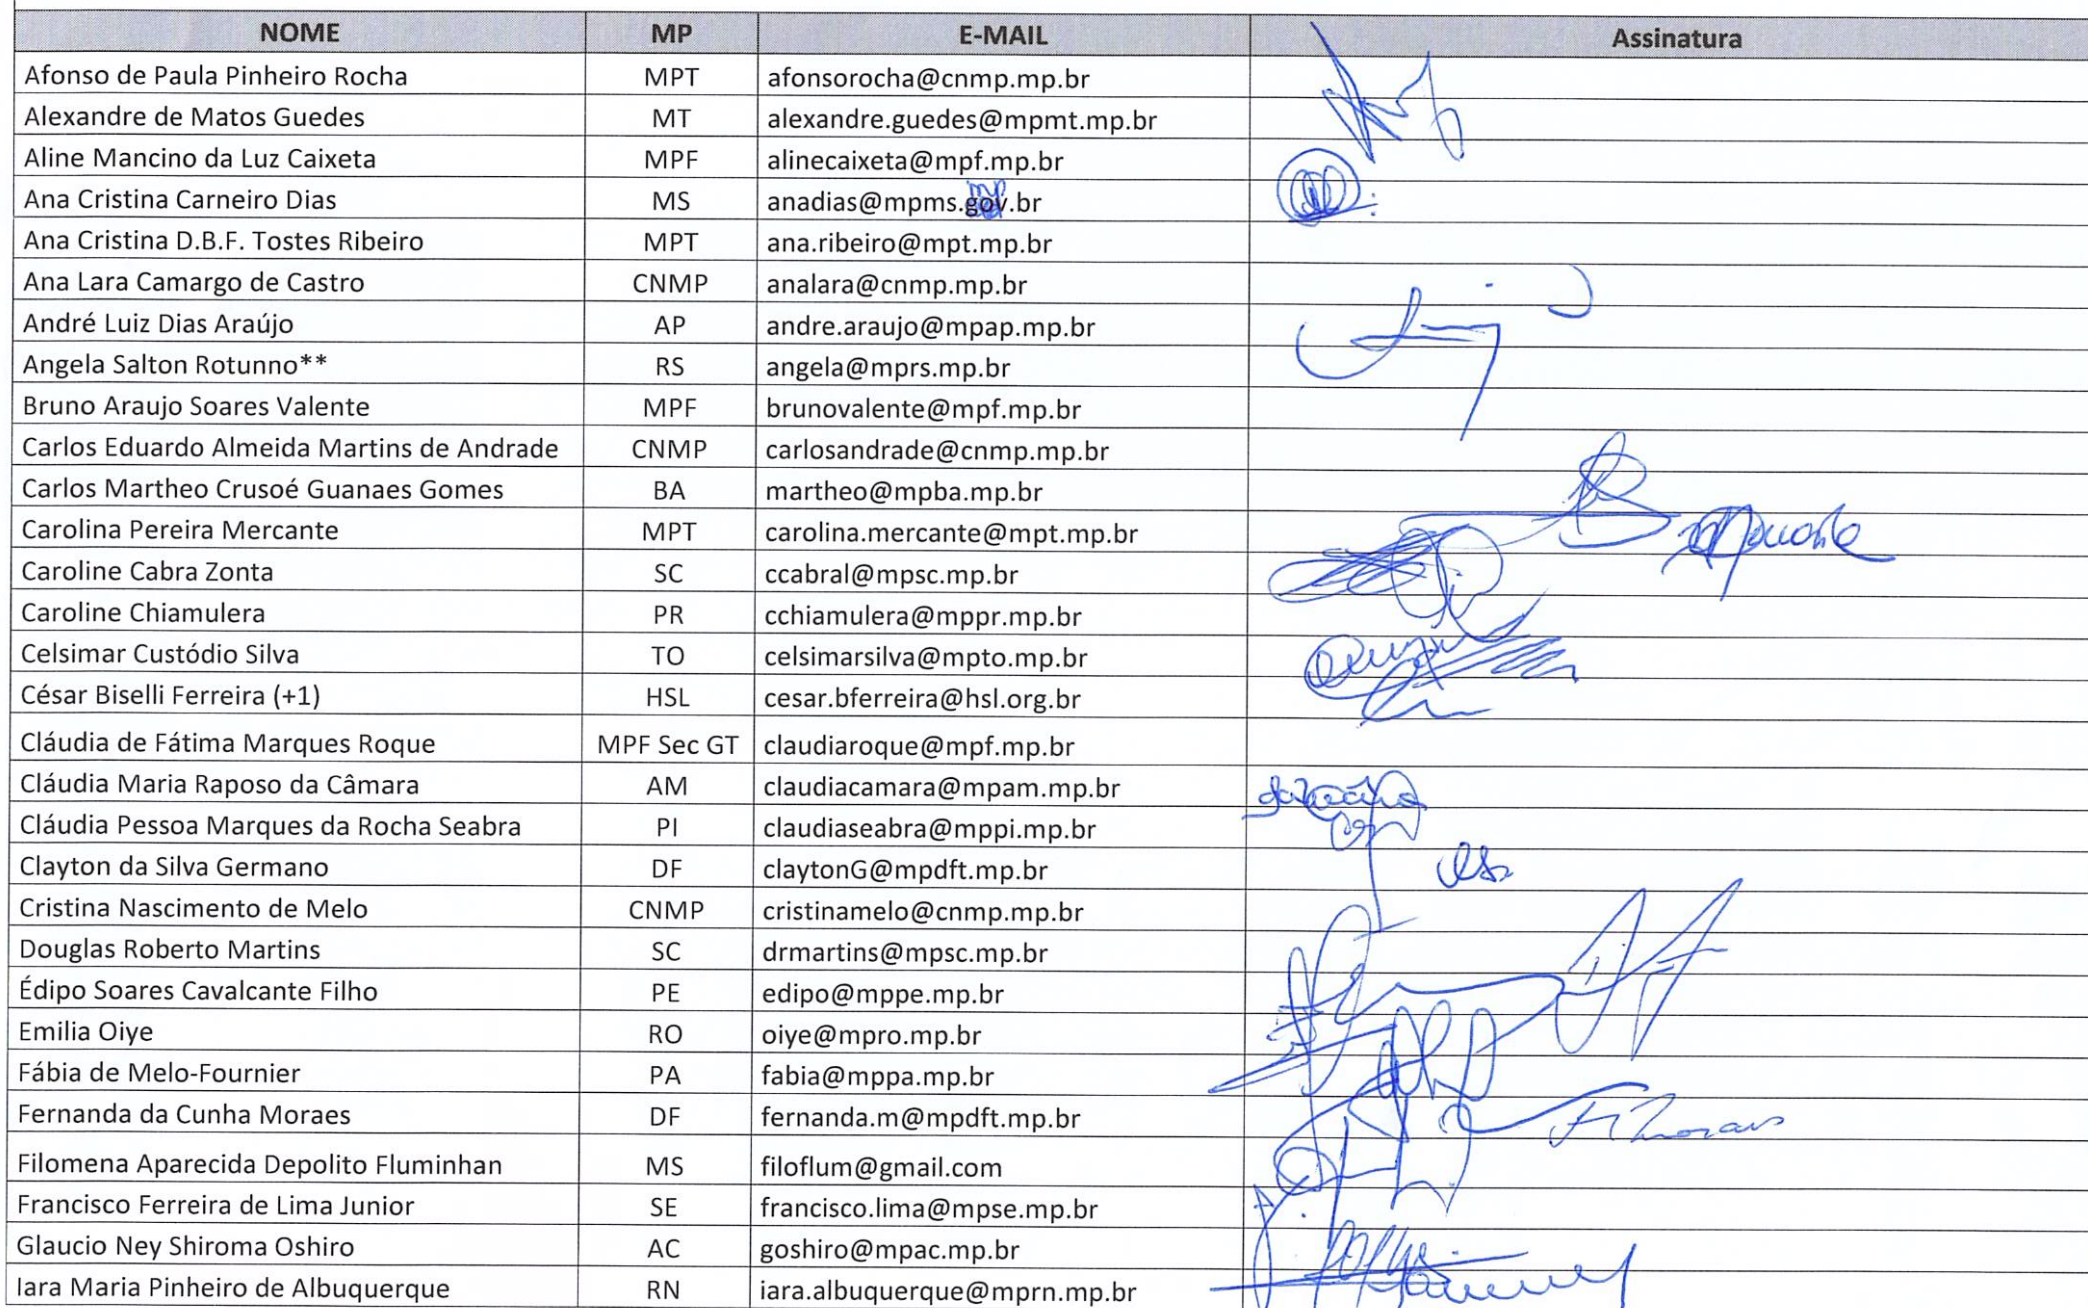 NOME MP E-MAIL Assinatura
Afonso de Paula Pinheiro Rocha MPT afonsorocha@cnmp.mp.br
Alexandre de Matos Guedes MT alexandre.guedes@mpmt.mp.br
Aline Mancino da Luz Caixeta MPF alinecaixeta@mpf.mp.br
Ana Cristina Carneiro Dias MS anadias@mpms.gov.br mp
Ana Cristina D.B.F. Tostes Ribeiro MPT ana.ribeiro@mpt.mp.br
Ana Lara Camargo de Castro CNMP analara@cnmp.mp.br
André Luiz Dias Araújo AP andre.araujo@mpap.mp.br
Angela Salton Rotunno** RS angela@mprs.mp.br
Bruno Araujo Soares Valente MPF brunovalente@mpf.mp.br
Carlos Eduardo Almeida Martins de Andrade CNMP carlosandrade@cnmp.mp.br
Carlos Martheo Crusoé Guanaes Gomes BA martheo@mpba.mp.br
Carolina Pereira Mercante MPT carolina.mercante@mpt.mp.br
Caroline Cabra Zonta SC ccabral@mpsc.mp.br
Caroline Chiamulera PR cchiamulera@mppr.mp.br
Celsimar Custódio Silva TO celsimarsilva@mpto.mp.br
César Biselli Ferreira (+1) HSL cesar.bferreira@hsl.org.br
Cláudia de Fátima Marques Roque MPF Sec GT claudiaroque@mpf.mp.br
Cláudia Maria Raposo da Câmara AM claudiacamara@mpam.mp.br
Cláudia Pessoa Marques da Rocha Seabra PI claudiaseabra@mppi.mp.br
Clayton da Silva Germano DF claytonG@mpdft.mp.br
Cristina Nascimento de Melo CNMP cristinamelo@cnmp.mp.br
Douglas Roberto Martins SC drmartins@mpsc.mp.br
Édipo Soares Cavalcante Filho PE edipo@mppe.mp.br
Emilia Oiye RO oiye@mpro.mp.br
Fábia de Melo-Fournier PA fabia@mppa.mp.br
Fernanda da Cunha Moraes DF fernanda.m@mpdft.mp.br
Filomena Aparecida Depolito Fluminhan MS filoflum@gmail.com
Francisco Ferreira de Lima Junior SE francisco.lima@mpse.mp.br
Glaucio Ney Shiroma Oshiro AC goshiro@mpac.mp.br
Iara Maria Pinheiro de Albuquerque RN iara.albuquerque@mprn.mp.br